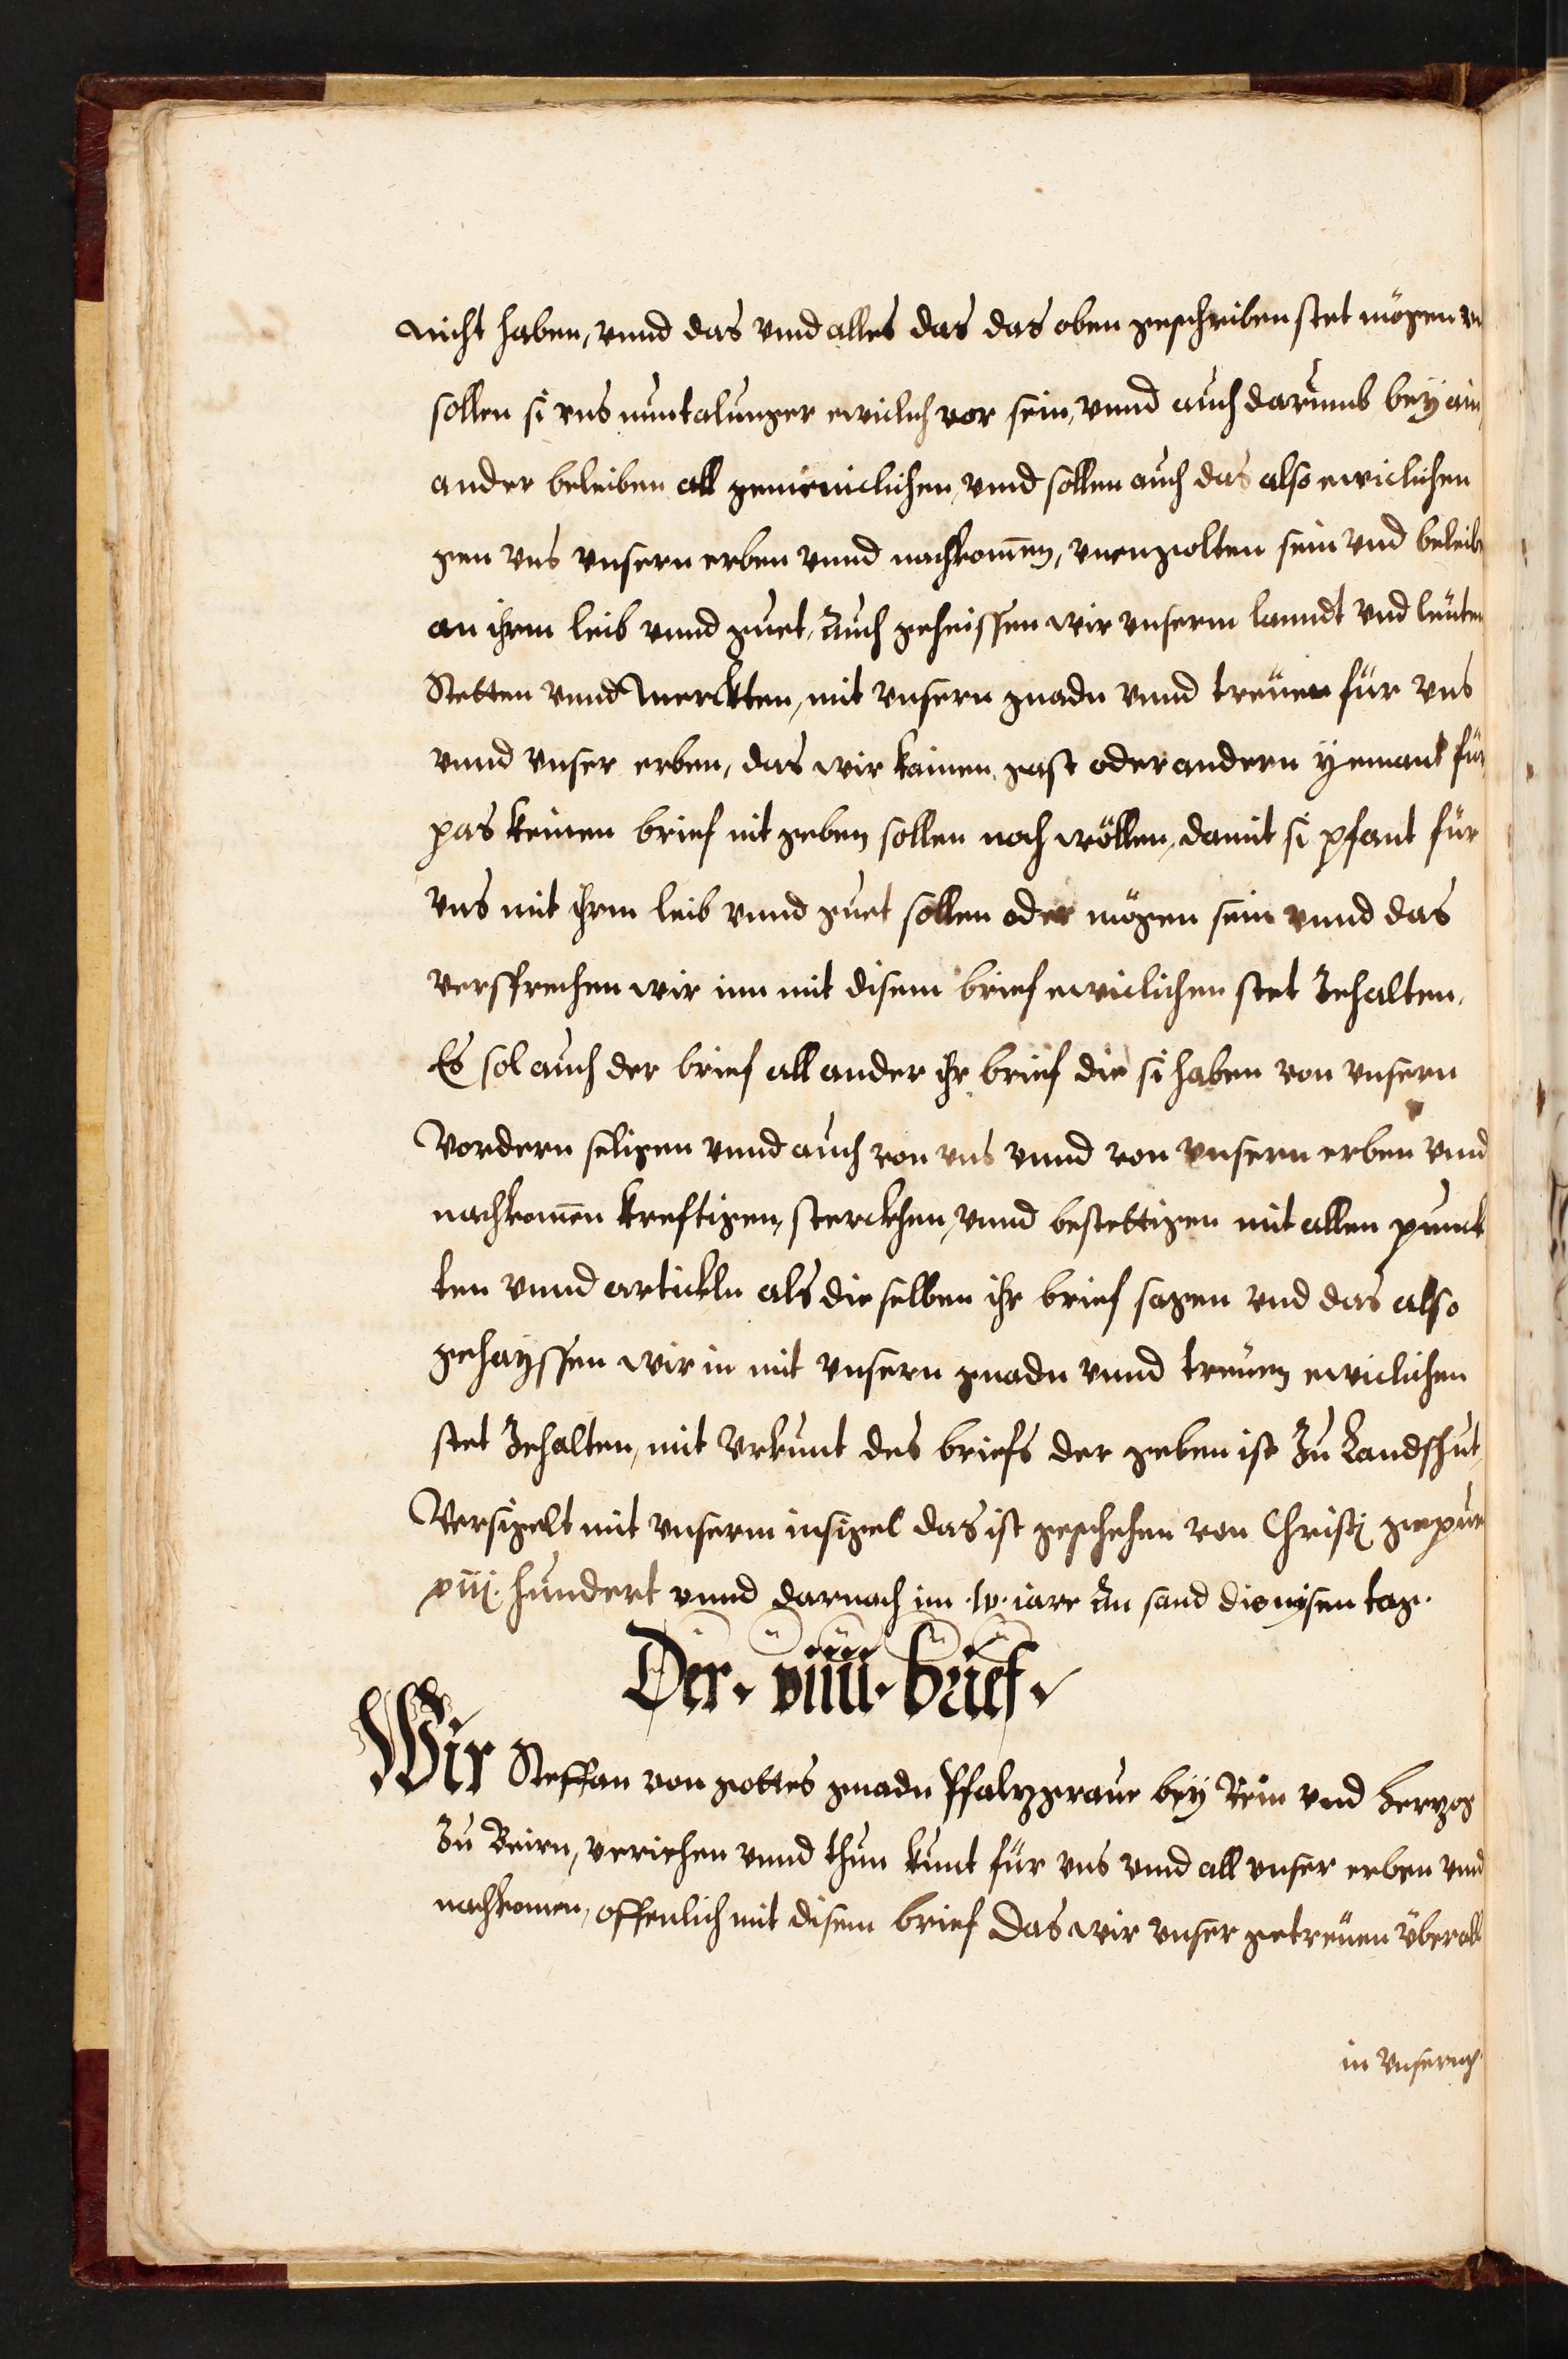 nicht haben, vnnd das vnnd alles das das oben geschriben stet mögen vn
sollen si vns nuntalunger ewiclich vor sein, vnnd auch darumb bey ain
ander beleiben all gemeiniclichen, vnnd sollen auch das also ewiclichen
gen vns vnsern erben vnnd nachkomen, vnengolten sein vnd beleib
an ihrm leib vnnd guet, Auch geheissen wir vnserm lanndt vnd leüten
Stetten vnnd Merckten, mit vnsern gnadn vnnd treüen für vns
vnnd vnser erben, das wir kainen gast oder andern yemant für
pas keinen brief nit geben sollen noch wöllen, damit si pfant für
vns mit ihrm leib vnnd guet sollen oder mögen sein vnnd das
versprechen wir inn mit disem brief ewiclichen stet Zehalten,
Es sol auch der brief all ander ihr brief die si haben von vnsern
Vordern seligen vnnd auch von vns vnnd von vnsern erben vnnd
nachkomen kreftigen, sterckhen, vnnd bestettigen mit allen punck
ten vnnd artickln als die selben ihr brief sagen vnd das also
gehayssen wir in mit vnsern gnadn vnnd treüen ewiclichen
stet Zehalten, mit Vrkunt des briefs der geben ist Zu Landshut,
Versigelt mit vnserm insigel das ist geschehen von Christj gepur
xiij. hundert vnnd darnach im .lv. iare An sand dionisen tag.
Der. viiii. brief.
Wir Steffan von gottes gnadn Pfalzgraue bey Rein vnd Herzog
Zu Beirn, veriehen vnnd thun kunt für vns vnnd all vnser erben vnnd
nachkomen, offenlich mit disem brief Das wir vnser getreüen überall
in vnserm